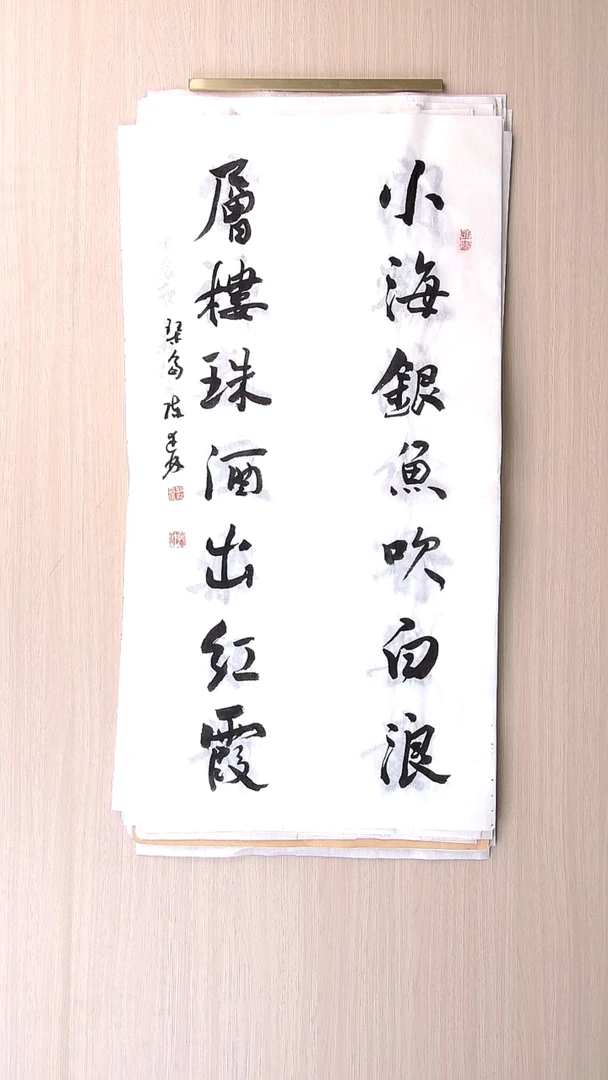 小海銀魚吹白浪
層樓珠酒出紅霞
琴島